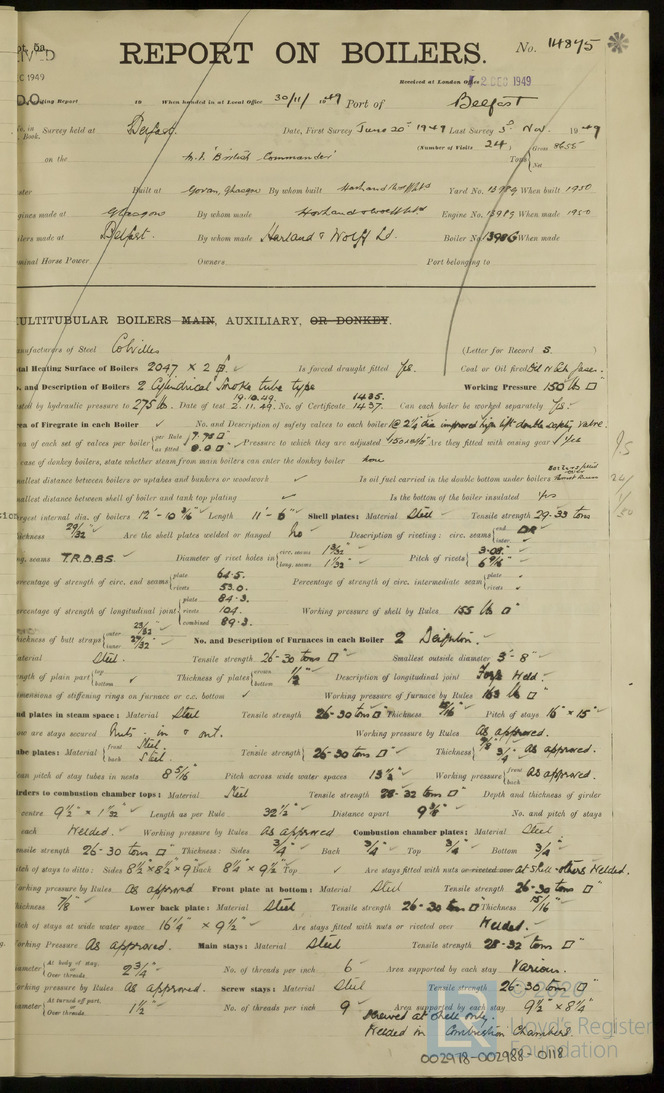 REPORT ON BOILERS. No. 14875
Received at London Office 2 DEC 1949
C 1949
D.O. ding Report 19 When handed in at Local Office 30/11/ 1949 Port of Belfast
No. in Survey held at Belfast. Date, First Survey June 20th 1949 Last Survey 3d Nov. 1949
Book. (Number of Visits 24) Gross 8655
on the M.V. 'British Commander' Tons Net
Built at Govan, Glasgow By whom built Harland & Wolff Ltd Yard No. 1398G When built 1950
gines made at Glasgow By whom made Harland & Wolff Ltd Engine No. 1398G When made 1950
ilers made at Belfast. By whom made Harland & Wolff Ld. Boiler No. 1398G When made
minal Horse Power Owners Port belonging to
ULTITUBULAR BOILERS MAIN, AUXILIARY, OR DONKEY.
nufacturers of Steel Colvilles (Letter for Record S.
tal Heating Surface of Boilers 2047 × 2 Is forced draught fitted Yes. Coal or Oil fired
. and Description of Boilers 2 Cylindrical Smoke tube type Working Pressure 150 lbs □"
19.10.49. 1435.
ted by hydraulic pressure to 275 lbs. Date of test 2.11.49. No. of Certificate 1437. Can each boiler be worked separately Yes.
rea of Firegrate in each Boiler ✓ No. and Description of safety valves to each boiler 1 @ 2½" dia improved high lift double safety valve.
rea of each set of valves per boiler {per Rule 7.98 □" as fitted 8.0 □" Pressure to which they are adjusted 150 lbs/□" Are they fitted with easing gear Yes
case of donkey boilers, state whether steam from main boilers can enter the donkey boiler none
mallest distance between boilers or uptakes and bunkers or woodwork ✓ Is oil fuel carried in the double bottom under boilers
mallest distance between shell of boiler and tank top plating ✓ Is the bottom of the boiler insulated Yes
rgest internal dia. of boilers 12' - 10 3/16" Length 11' - 6" Shell plates: Material Steel Tensile strength 29-33 tons
ickness 29/32" Are the shell plates welded or flanged No Description of riveting: circ. seams {end DR inter. ✓
g. seams T.R.D.B.S. Diameter of rivet holes in {circ. seams 1 3/32" long. seams 1 1/32" Pitch of rivets {3.09" 6 9/16"
ercentage of strength of circ. end seams {plate 64.5. rivets 53.0. Percentage of strength of circ. intermediate seam {plate ✓ rivets ✓
ercentage of strength of longitudinal joint {plate 84.3. rivets 104. combined 89.3. Working pressure of shell by Rules 155 lbs □"
hickness of butt straps {outer 23/32" inner 29/32" No. and Description of Furnaces in each Boiler 2 Deighton.
aterial Steel. Tensile strength 26-30 tons □" Smallest outside diameter 3' - 8"
ngth of plain part {top bottom ✓ Thickness of plates {crown bottom ½" Description of longitudinal joint Forge Weld.
imensions of stiffening rings on furnace or c.c. bottom ✓ Working pressure of furnace by Rules 163 lbs □"
nd plates in steam space: Material Steel Tensile strength 26-30 tons □" Thickness 15/16" Pitch of stays 16" × 15"
ow are stays secured Nuts - in & out. Working pressure by Rules As approved.
ube plates: Material {front Steel. back Steel. Tensile strength {26-30 tons □" Thickness {7/8" 3/4" As approved.
ean pitch of stay tubes in nests 8 5/16" Pitch across wide water spaces 13½" Working pressure {front back As approved.
irders to combustion chamber tops: Material Steel Tensile strength 28-32 tons □" Depth and thickness of girder
centre 9½" × 1 1/32" Length as per Rule 32½" Distance apart 9 3/8" No. and pitch of stays
each Welded. Working pressure by Rules As approved Combustion chamber plates: Material Steel
ensile strength 26-30 tons □" Thickness: Sides 3/4" Back 3/4" Top 3/4" Bottom 3/4"
itch of stays to ditto: Sides 8½" × 8½" × 9" Back 8¼" × 9½" Top ✓ Are stays fitted with nuts or riveted over At Shell - others Welded.
orking pressure by Rules As approved Front plate at bottom: Material Steel Tensile strength 26-30 tons □"
hickness 7/8" Lower back plate: Material Steel Tensile strength 26-30 tons □" Thickness 15/16"
itch of stays at wide water space 16¼" × 9½" Are stays fitted with nuts or riveted over Welded.
orking Pressure As approved. Main stays: Material Steel Tensile strength 28-32 tons □"
iameter {At body of stay, or Over threads. 2¾" No. of threads per inch 6 Area supported by each stay Various.
orking pressure by Rules As approved. Screw stays: Material Steel Tensile strength 26-30 tons □"
iameter {At turned off part, or Over threads. 1½" No. of threads per inch 9 Area supported by each stay 9½" × 8¼"
Screwed at Shell only.
Welded in Combustion Chambers.
© 2020
Lloyd's Register
Foundation
002978-002988-0118